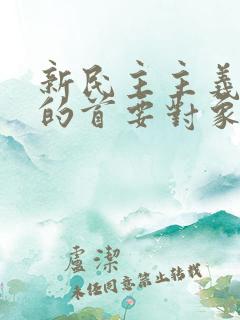 新民主主義
的首要對象
盧潔
未經同意禁止轉載